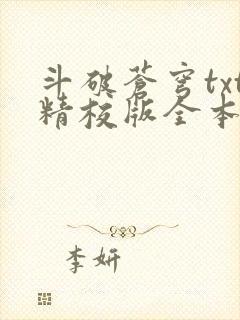 斗破蒼穹txt
精校版全本
李妍